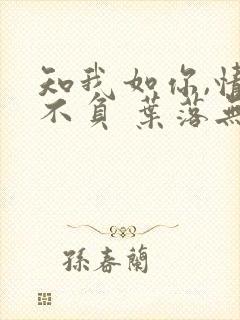 知我如你,情
不負 葉落無
孫春蘭